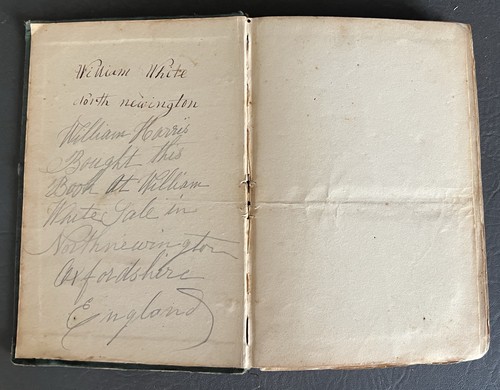 William White
North newington
William Harris
Bought this
Book At William
White Sale in
Northnewington
Oxfordshire
England